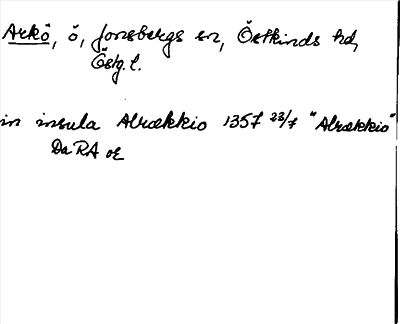 Arkö, ö, Jonsbergs sn, Östkinds hd,
Östg. l.
in insula Alrækkio 1357 23/7 "Alrækkio"
Da RA or